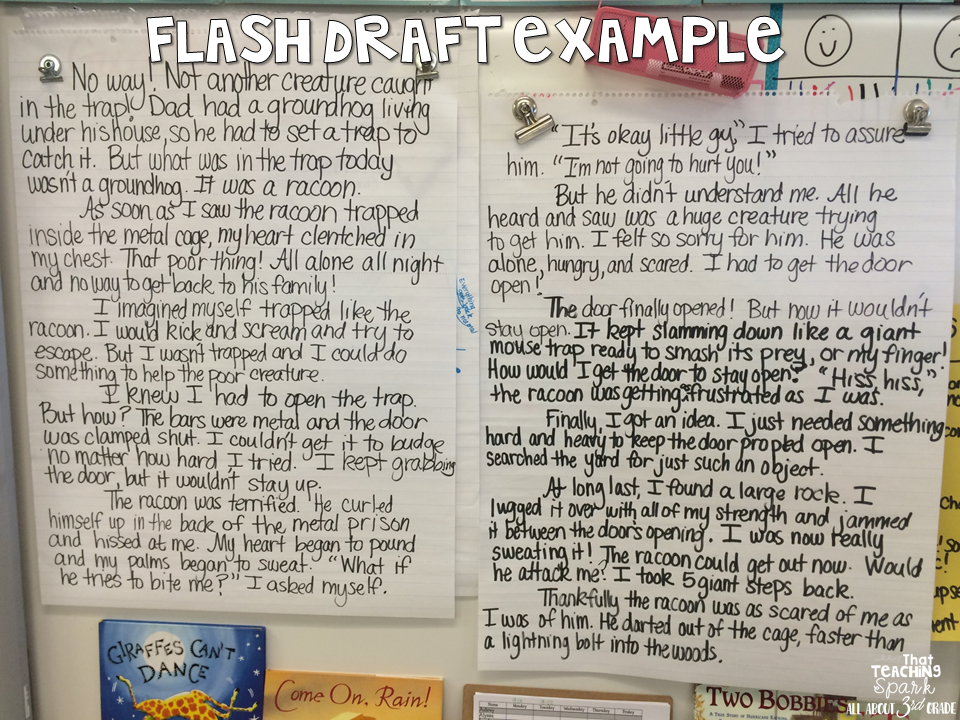 FLASH DRAFT EXAMPLE
No way! Not another creature caught
in the trap! Dad had a groundhog living
under his house, so he had to set a trap to
catch it. But what was in the trap today
wasn't a groundhog. It was a racoon.
As soon as I saw the racoon trapped
inside the metal cage, my heart clentched in
my chest. That poor thing! All alone all night
and no way to get back to his family!
I imagined myself trapped like the
racoon. I would kick and scream and try to
escape. But I wasn't trapped and I could do
something to help the poor creature.
I knew I had to open the trap.
But how? The bars were metal and the door
was clamped shut. I couldn't get it to budge
no matter how hard I tried. I kept grabbing
the door, but it wouldn't stay up.
The racoon was terrified. He curled
himself up in the back of the metal prison
and hissed at me. My heart began to pound
and my palms began to sweat. "What if
he tries to bite me?" I asked myself.
"It's okay little guy," I tried to assure
him. "I'm not going to hurt you!"
But he didn't understand me. All he
heard and saw was a huge creature trying
to get him. I felt so sorry for him. He was
alone, hungry, and scared. I had to get the door
open!
The door finally opened! But now it wouldn't
stay open. It kept slamming down like a giant
mouse trap ready to smash its prey, or my finger!
How would I get the door to stay open? "Hiss, hiss,"
the racoon was getting frustrated as I was.
Finally, I got an idea. I just needed something
hard and heavy to keep the door propped open. I
searched the yard for just such an object.
At long last, I found a large rock. I
lugged it over with all of my strength and jammed
it between the door's opening. I was now really
sweating it! The racoon could get out now. Would
he attack me? I took 5 giant steps back.
Thankfully the racoon was as scared of me as
I was of him. He darted out of the cage, faster than
a lightning bolt into the woods.
GIRAFFES CAN'T
DANCE
Come On, Rain!
Name Monday Tuesday Wednesday Thursday Friday
TWO BOBBIES
A TRUE STORY OF HURRICANE
That
TEACHING
Spark
ALL ABOUT 3rd GRADE